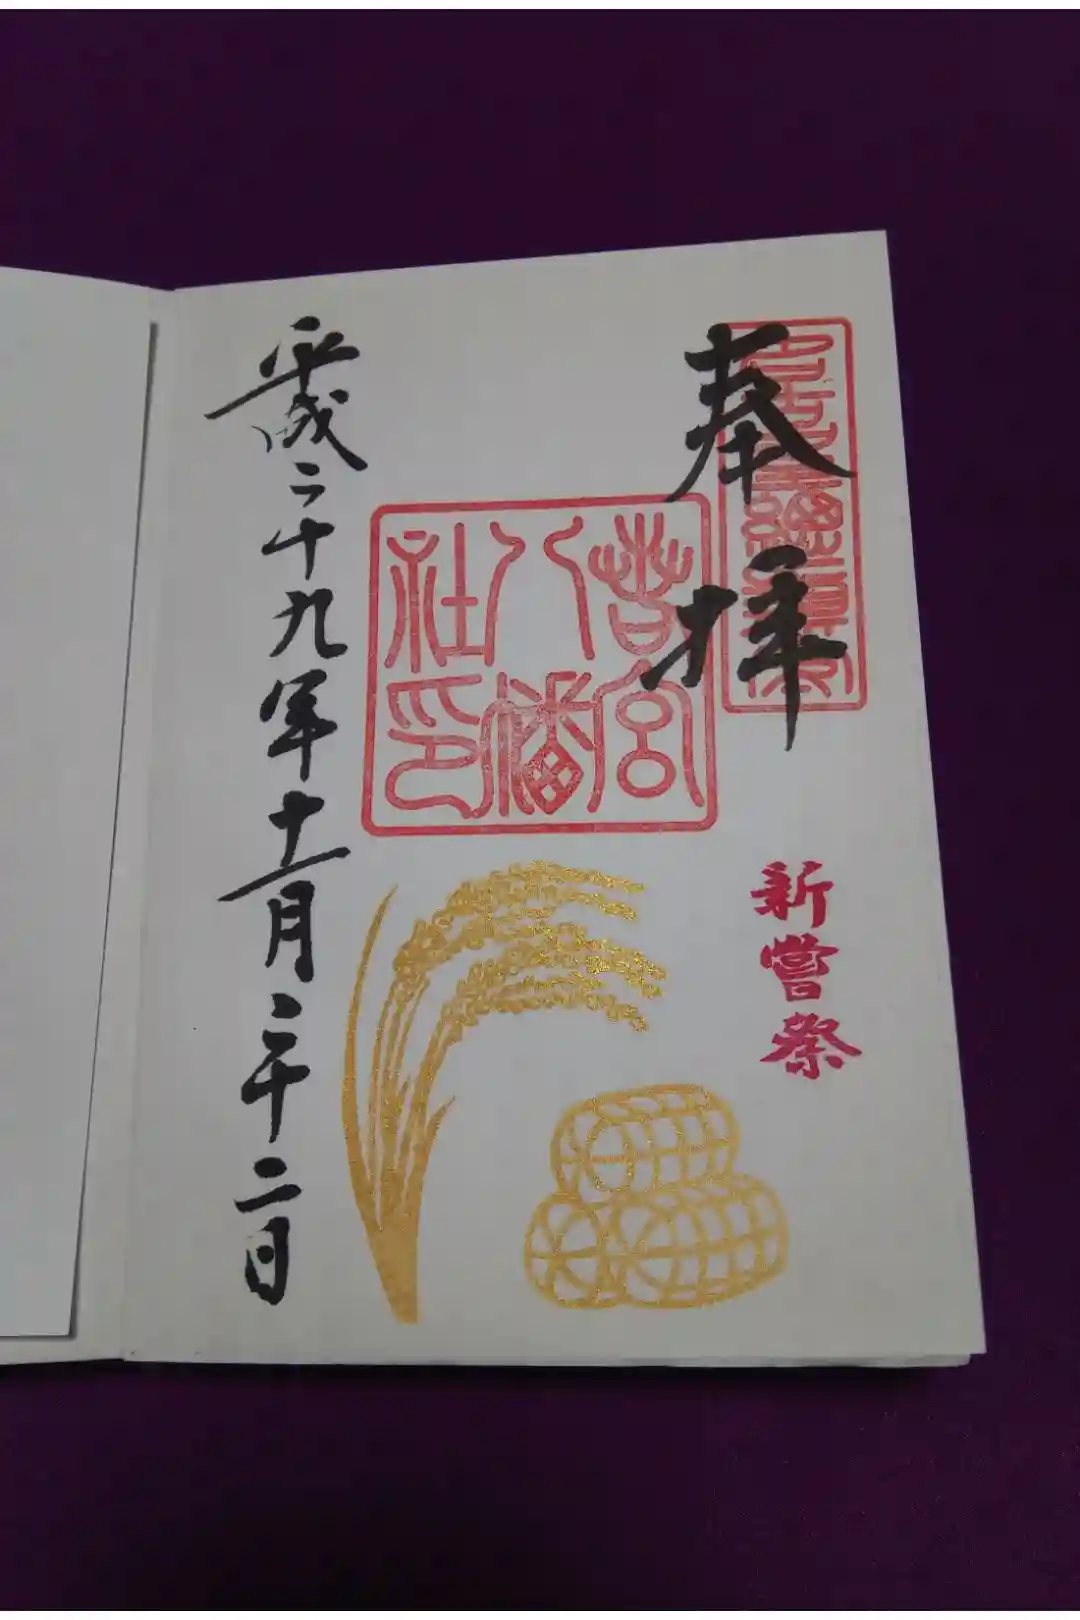 奉拝
新嘗祭
若宮
八幡
社印
平成二十九年十一月二十二日